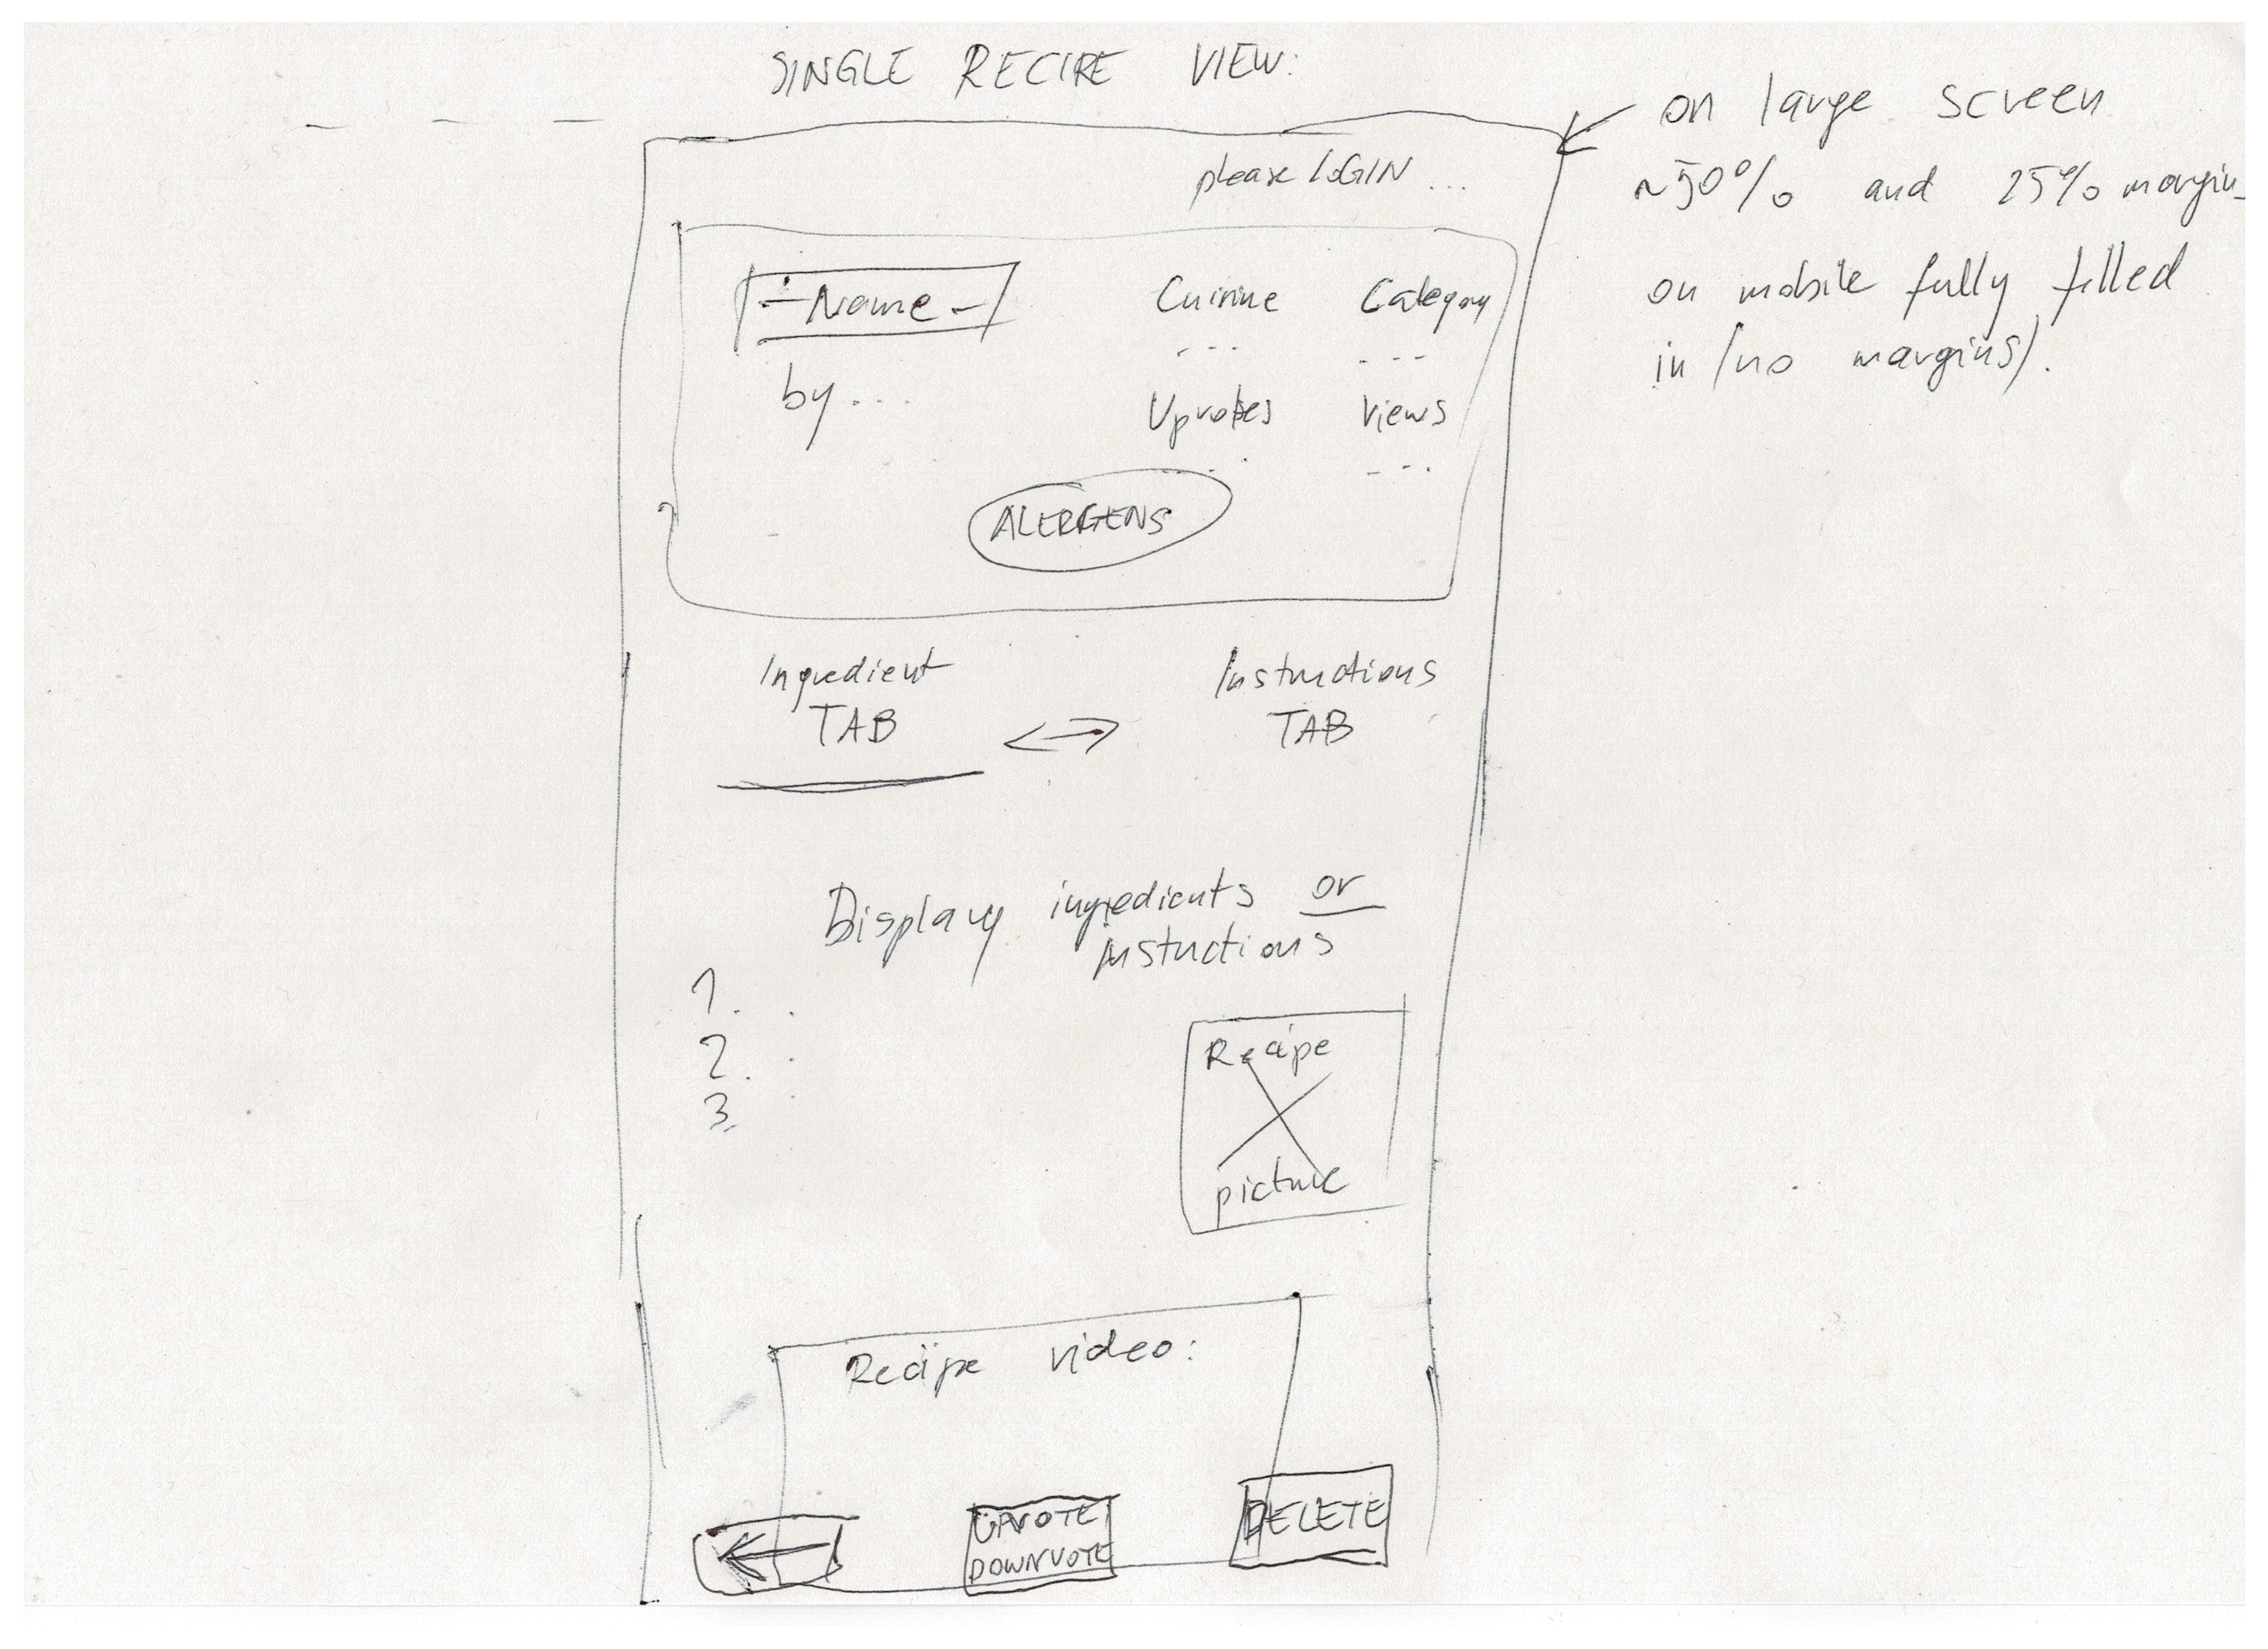 SINGLE RECIPE VIEW:
on large screen
~50% and 25% margin
on mobile fully filled
in (no margins).
please LOGIN ...
- Name -
by ...
Cuisine Category
... ...
Upvotes Views
... ...
ALERGENS
Ingredient
TAB
Instructions
TAB
Display ingredients or
instructions
1. .
2. .
3. .
Recipe
picture
Recipe video:
UPVOTE/
DOWNVOTE
DELETE